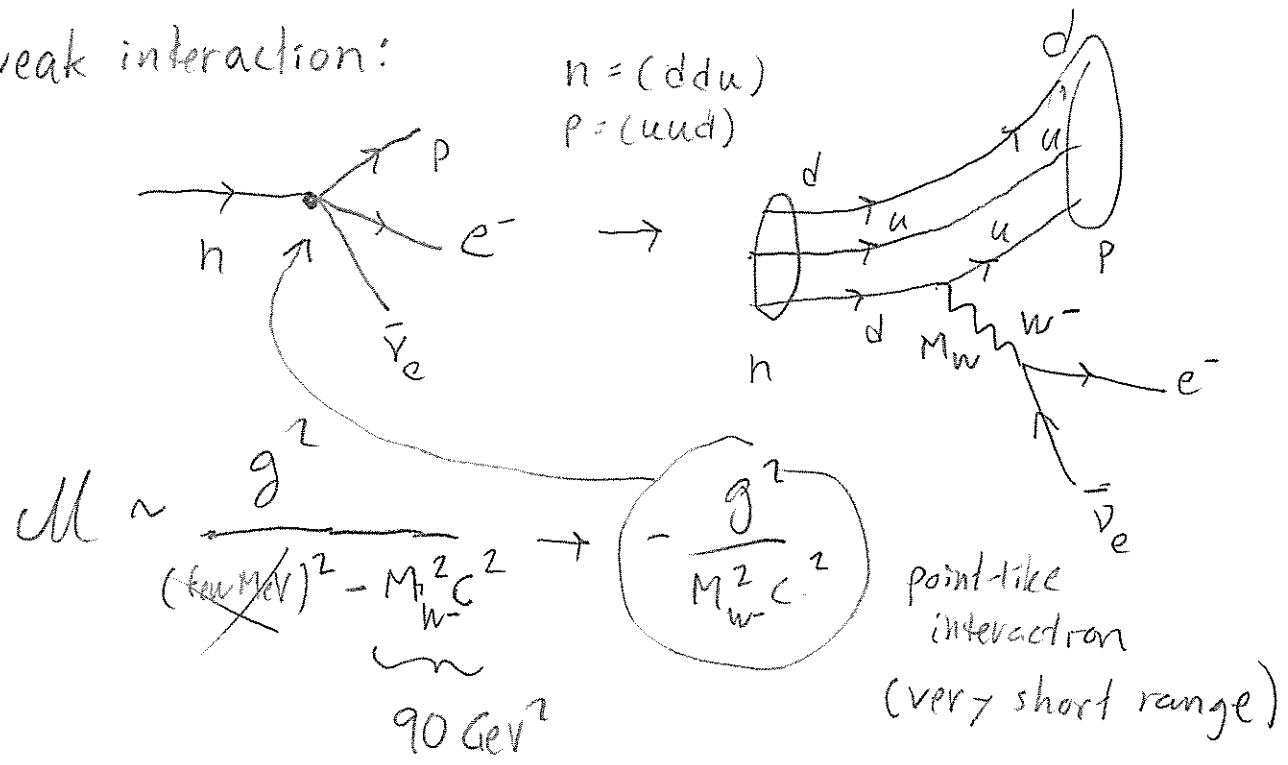 weak interaction:
n = (ddu)
p = (uud)
n
p
e⁻
ν̄e
→
d
u
d
n
d
u
u
p
M_W
W⁻
e⁻
ν̄e
M ~ g² / ((few MeV)² - M²_W⁻ c²) → - g² / (M²_W⁻ c²)
90 GeV²
point-like
interaction
(very short range)